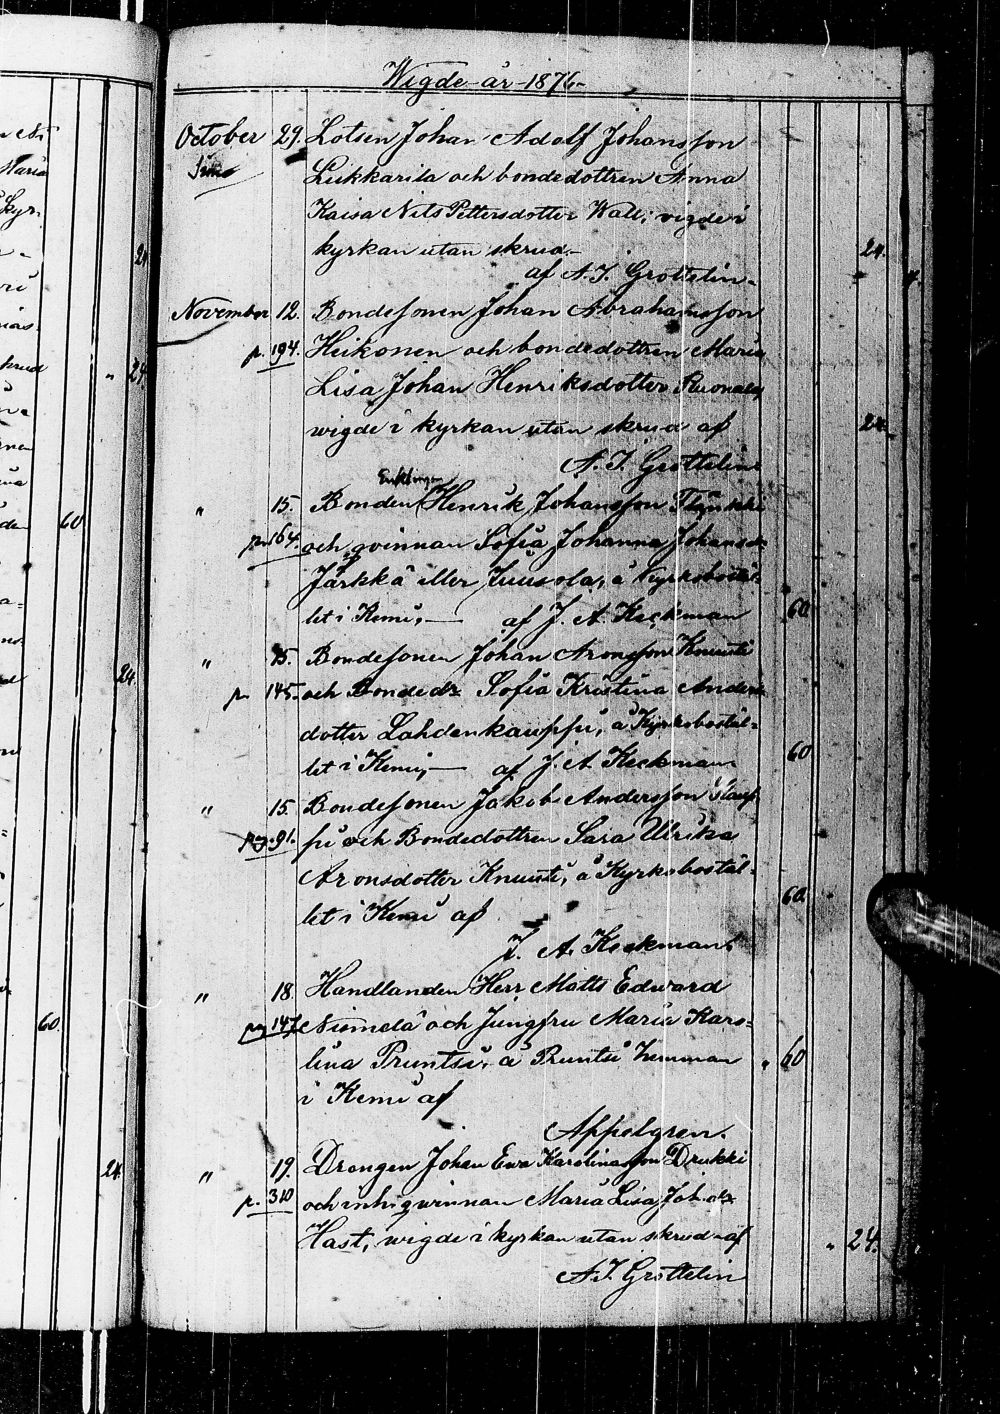 Wigde år 1876.
October 29. Lotsen Johan Adolf Johansson
Simo Leikkarila och bondedottren Anna
Kaisa Nils Pettersdotter Wall, vigde i
kyrkan utan skrud.- 24.
af A. I. Grottelin.
November 12. Bondesonen Johan Abrahamsson
p. 194. Heikonen och bondedottren Maria
Lisa Johan Henriksdotter
wigde i kyrkan utan skrud af 24.
A. I. Grottelin
Enklingen
" 15. Bonden Henrik Johansson
p. 164. och qvinnan Sofia Johanna Johansdr
Järkkä eller Juusola, å Kyrkobostäl-
let i Kemi, — af J. A. Keckman 60
" 15. Bondesonen Johan Aronsson Knuuti
p. 145. och Bondedr Sofia Kristina Anders
dotter Lahdenkauppi, å Kyrkobostäl-
let i Kemi, — af J. A. Keckman 60
" 15. Bondesonen Jakob Andersson Kaup-
pag 91. pi och Bondedottren Sara Ulrika
Aronsdotter Knuuti, å Kyrkobostäl-
let i Kemi af 60
J. A. Keckman
" 18. Handlanden Herr Matts Edward
pag 147. Niemelä och Jungfru Maria Karo-
lina Pruntsi, å Pruntsi hemman " 60
i Kemi af
Appelgren.
" 19. Drengen Johan Ewa Karolinasson Drukki
p. 310 och inhiqwinnan Maria Lisa Joh.dr
Hast, wigde i kyrkan utan skrud af " 24.
A. I. Grottelin
60
24
24
60
24